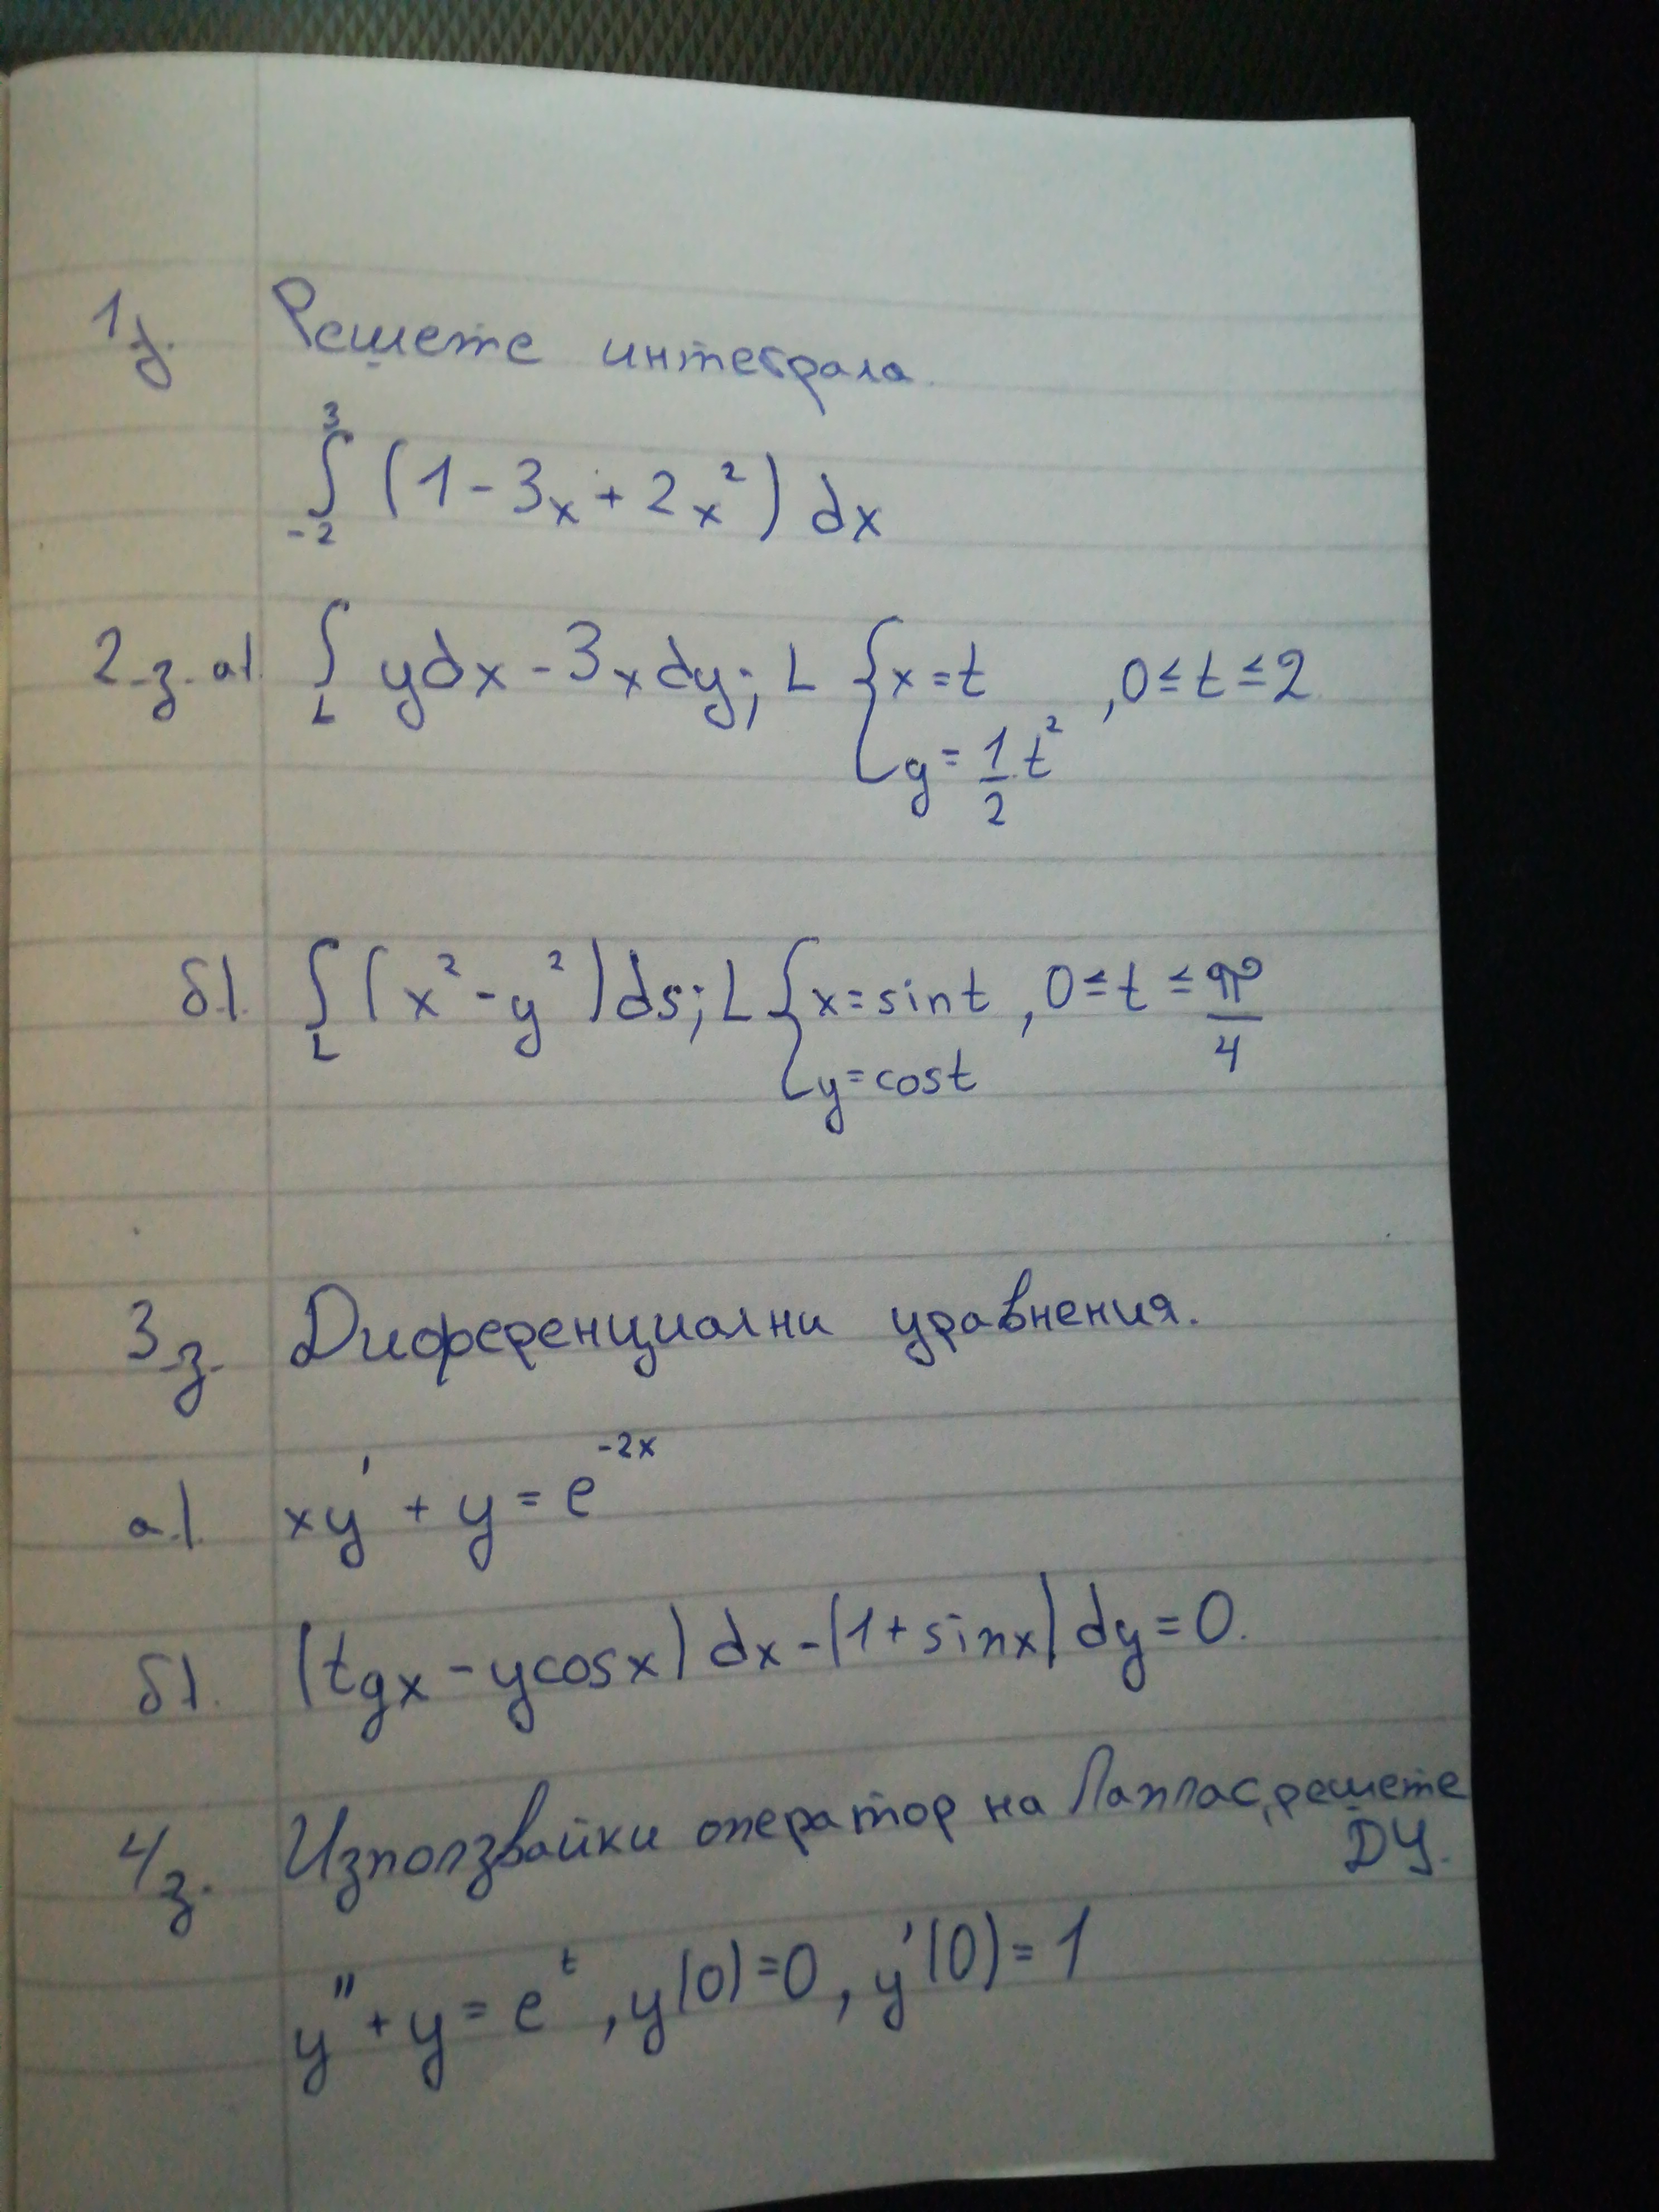 1з. Решете интеграла.
∫₋₂³ (1-3x+2x²) dx
2.з. а). ∫_L ydx-3xdy; L {x=t ,0≤t≤2
y=1/2 t²
б). ∫_L (x²-y²)ds; L {x=sint ,0≤t≤π/4
y=cost
3.з. Диференциални уравнения.
а). xy'+y=e^(-2x)
б). (tgx-ycosx)dx-(1+sinx)dy=0.
4з. Използвайки оператор на Лаплас, решете
ДУ.
y''+y=e^t, y(0)=0, y'(0)=1